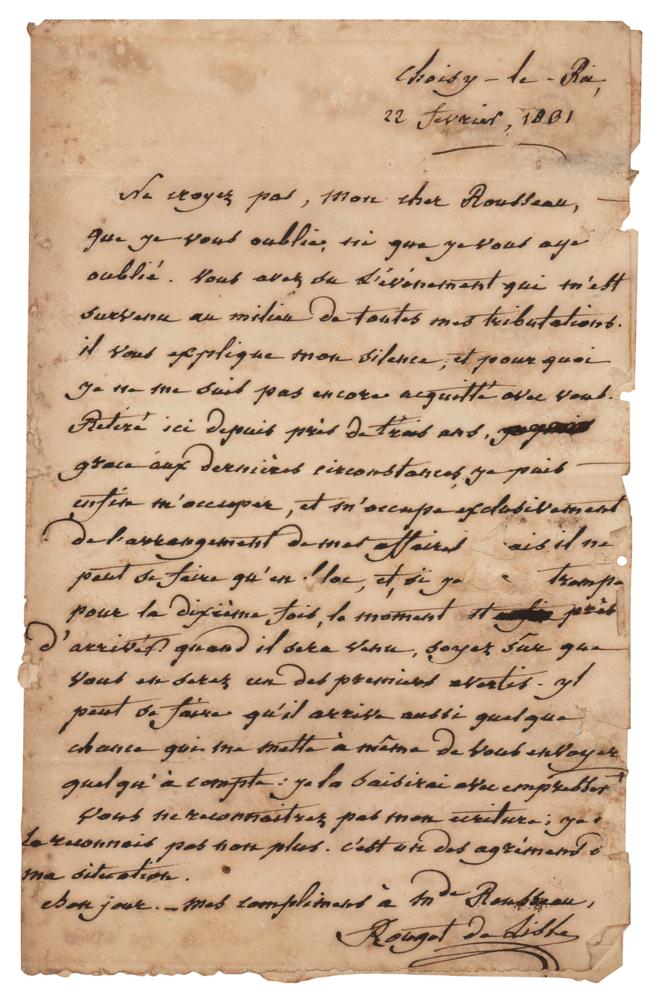 Choisy-le-Roi,
22 fevrier, 1831
Ne croyez pas, mon cher Rousseau,
que je vous oublie, ni que je vous aye
oublié. Vous avez su l'événement qui m'est
survenu au milieu de toutes mes tributations.
il vous explique mon silence, et pourquoi
je ne me suis pas encore acquitté avec vous.
Retiré ici depuis près de trois ans,
grace aux dernières circonstances, je puis
enfin m'occuper, et m'occupe exclusivement
de l'arrangement de mes affaires ais il ne
peut se faire qu'en bloc, et, si je trompe
pour la dixième fois, le moment est près
d'arriver quand il sera venu, soyez sûr que
vous en serez un des premiers avertis. yl
peut se faire qu'il arrive aussi quelque
chance qui me mette à même de vous envoyer
quelqu'à compte : je la saisirai avec empressemt
vous ne reconnaitrez pas mon ecriture ; je
la reconnais pas non plus. c'est un des agréments
ma situation.
bon jour. _ mes compliments à mde Rousseau,
Rouget de Lisle